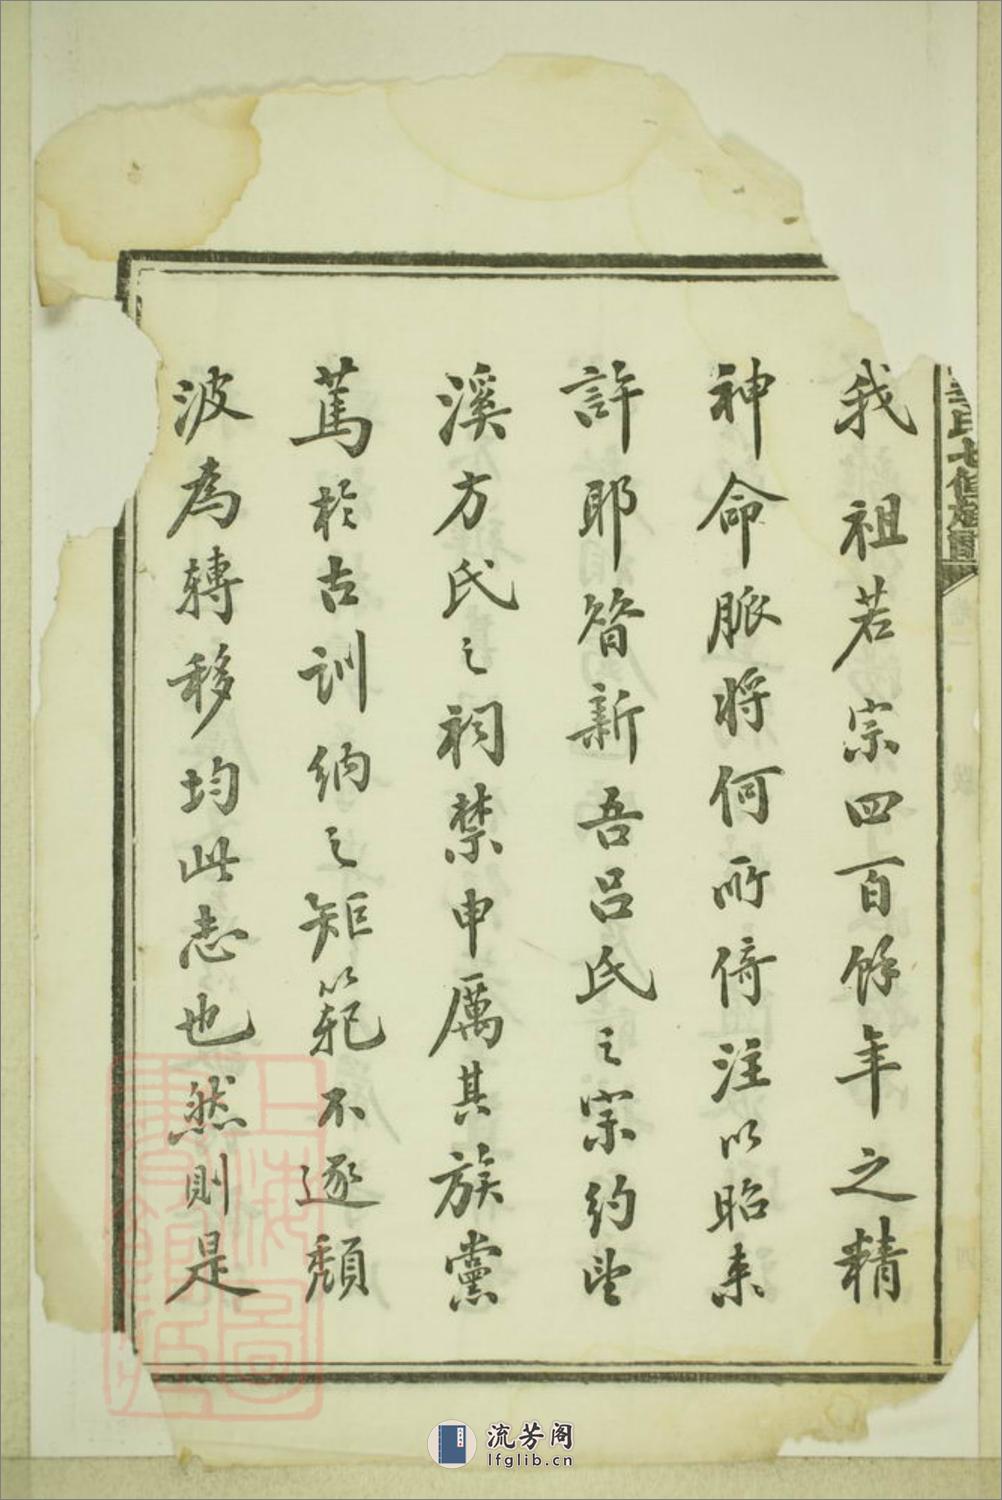 我祖若宗四百餘年之精
神命脈將何所倚注以昭来
許耶昝新吾呂氏之宗約望
溪方氏之祠禁申厲其族黨
篤於古訓納之矩範不逐頹
波為轉移均此志也然則是
氏七修族
上海圖書館藏
流芳阁
lfglib.cn